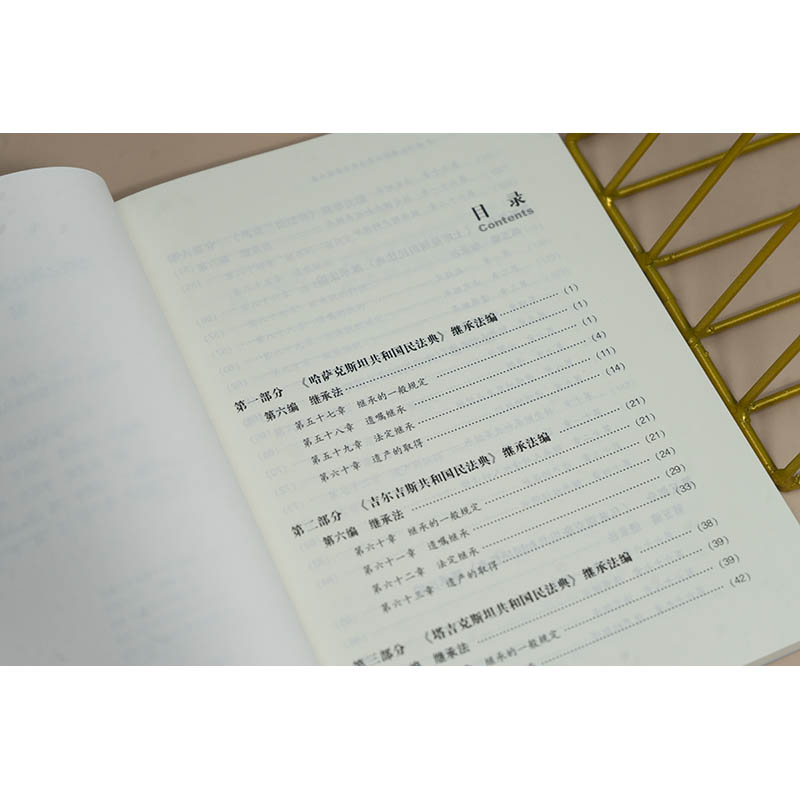 目 录
Contents
第一部分 《哈萨克斯坦共和国民法典》继承法编 (1)
第六编 继承法 (1)
第五十七章 继承的一般规定 (1)
第五十八章 遗嘱继承 (4)
第五十九章 法定继承 (11)
第六十章 遗产的取得 (14)
第二部分 《吉尔吉斯共和国民法典》继承法编 (21)
第六编 继承法 (21)
第六十章 继承的一般规定 (21)
第六十一章 遗嘱继承 (24)
第六十二章 法定继承 (29)
第六十三章 遗产的取得 (33)
第三部分 《塔吉克斯坦共和国民法典》继承法编 (38)
继承法 (39)
继承的一般规定 (39)
(42)